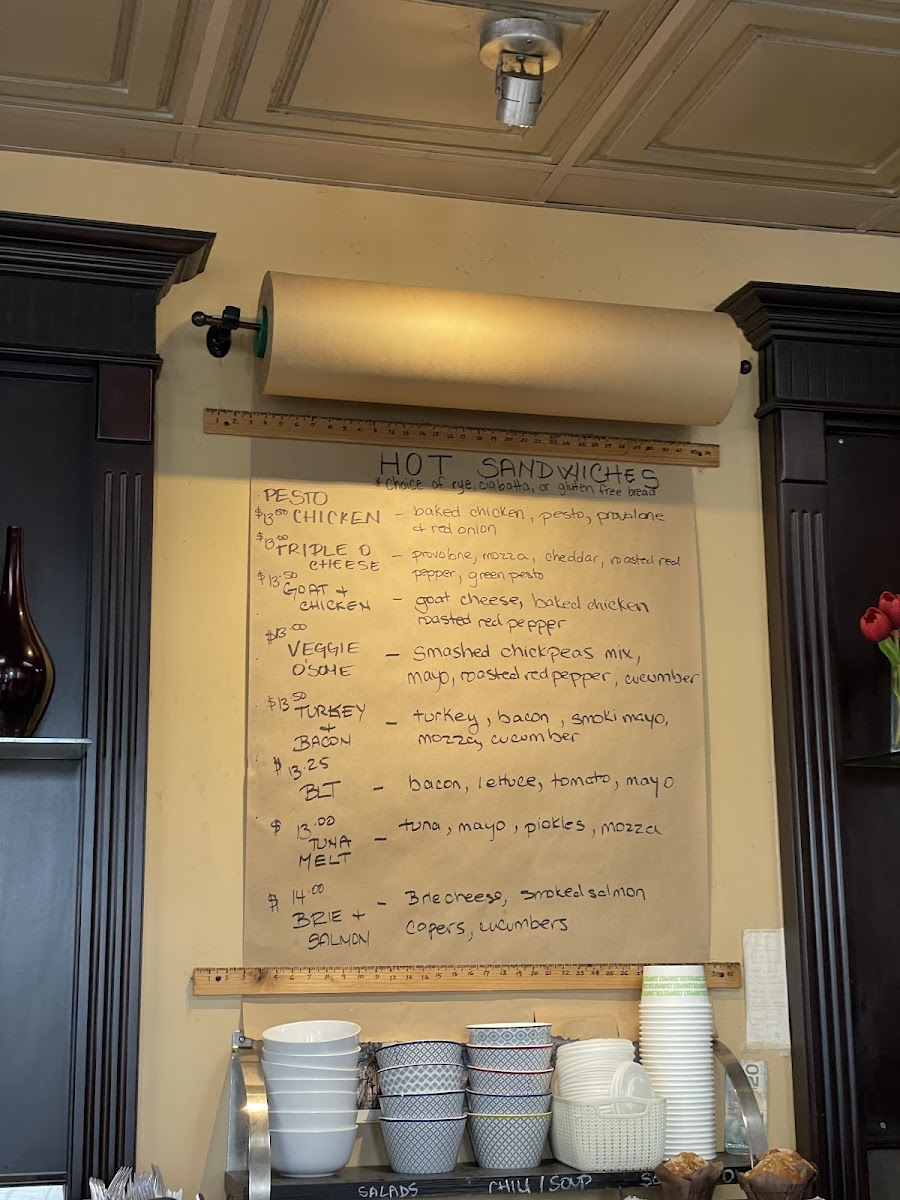 HOT SANDWICHES
*Choice of rye, ciabatta, or gluten free bread
PESTO
$13.50 CHICKEN - baked chicken, pesto, provolone
& red onion
$13.00
TRIPLE O - provolone, mozza, cheddar, roasted red
CHEESE pepper, green pesto
$13.50
GOAT + - goat cheese, baked chicken
CHICKEN roasted red pepper
$13.00
VEGGIE - Smashed chickpeas mix,
O'SOME mayo, roasted red pepper, cucumber
$13.50
TURKEY - turkey, bacon, smoki mayo,
+ mozza, cucumber
BACON
$13.25
BLT - bacon, lettuce, tomato, mayo
$13.00 - tuna, mayo, pickles, mozza
TUNA
MELT
$14.00 - Brie cheese, smoked salmon
BRIE + capers, cucumbers
SALMON
SALADS CHILI / SOUP